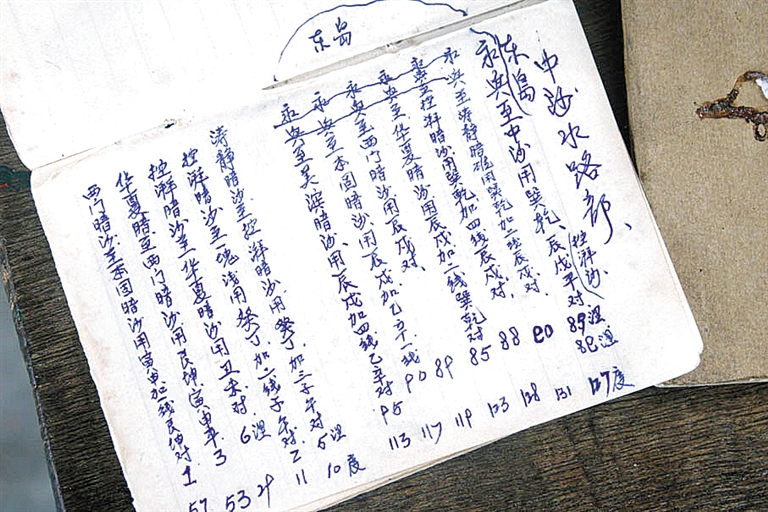 东岛
中沙水路部、
控湃沙 89湮 88湮 127度
东岛
永兴至中沙用巽乾、辰戌平对 90 131
永兴至涛静暗砂用巽乾加二线辰戌对. 88 128
永兴至控湃暗沙用巽乾加四线辰戌对. 85 123
永兴至华夏暗沙用辰戌加二线巽乾对 89 119
永兴至西门暗沙用辰戌对. 90 117
永兴至本固暗沙用辰戌加乙辛一线
永兴至美滨暗沙用辰戌加四线乙辛对 95 113
涛静暗沙至控湃暗沙用癸丁加三子午对 5湮 10度
控湃暗沙至一塊浅用癸丁加二线子午对2 11
控湃暗沙至华夏暗沙用丑未对. 6湮 29
华夏暗至西门暗沙用艮坤寅申平 3 53
西门暗沙至本固暗沙用寅申加线艮坤对 57